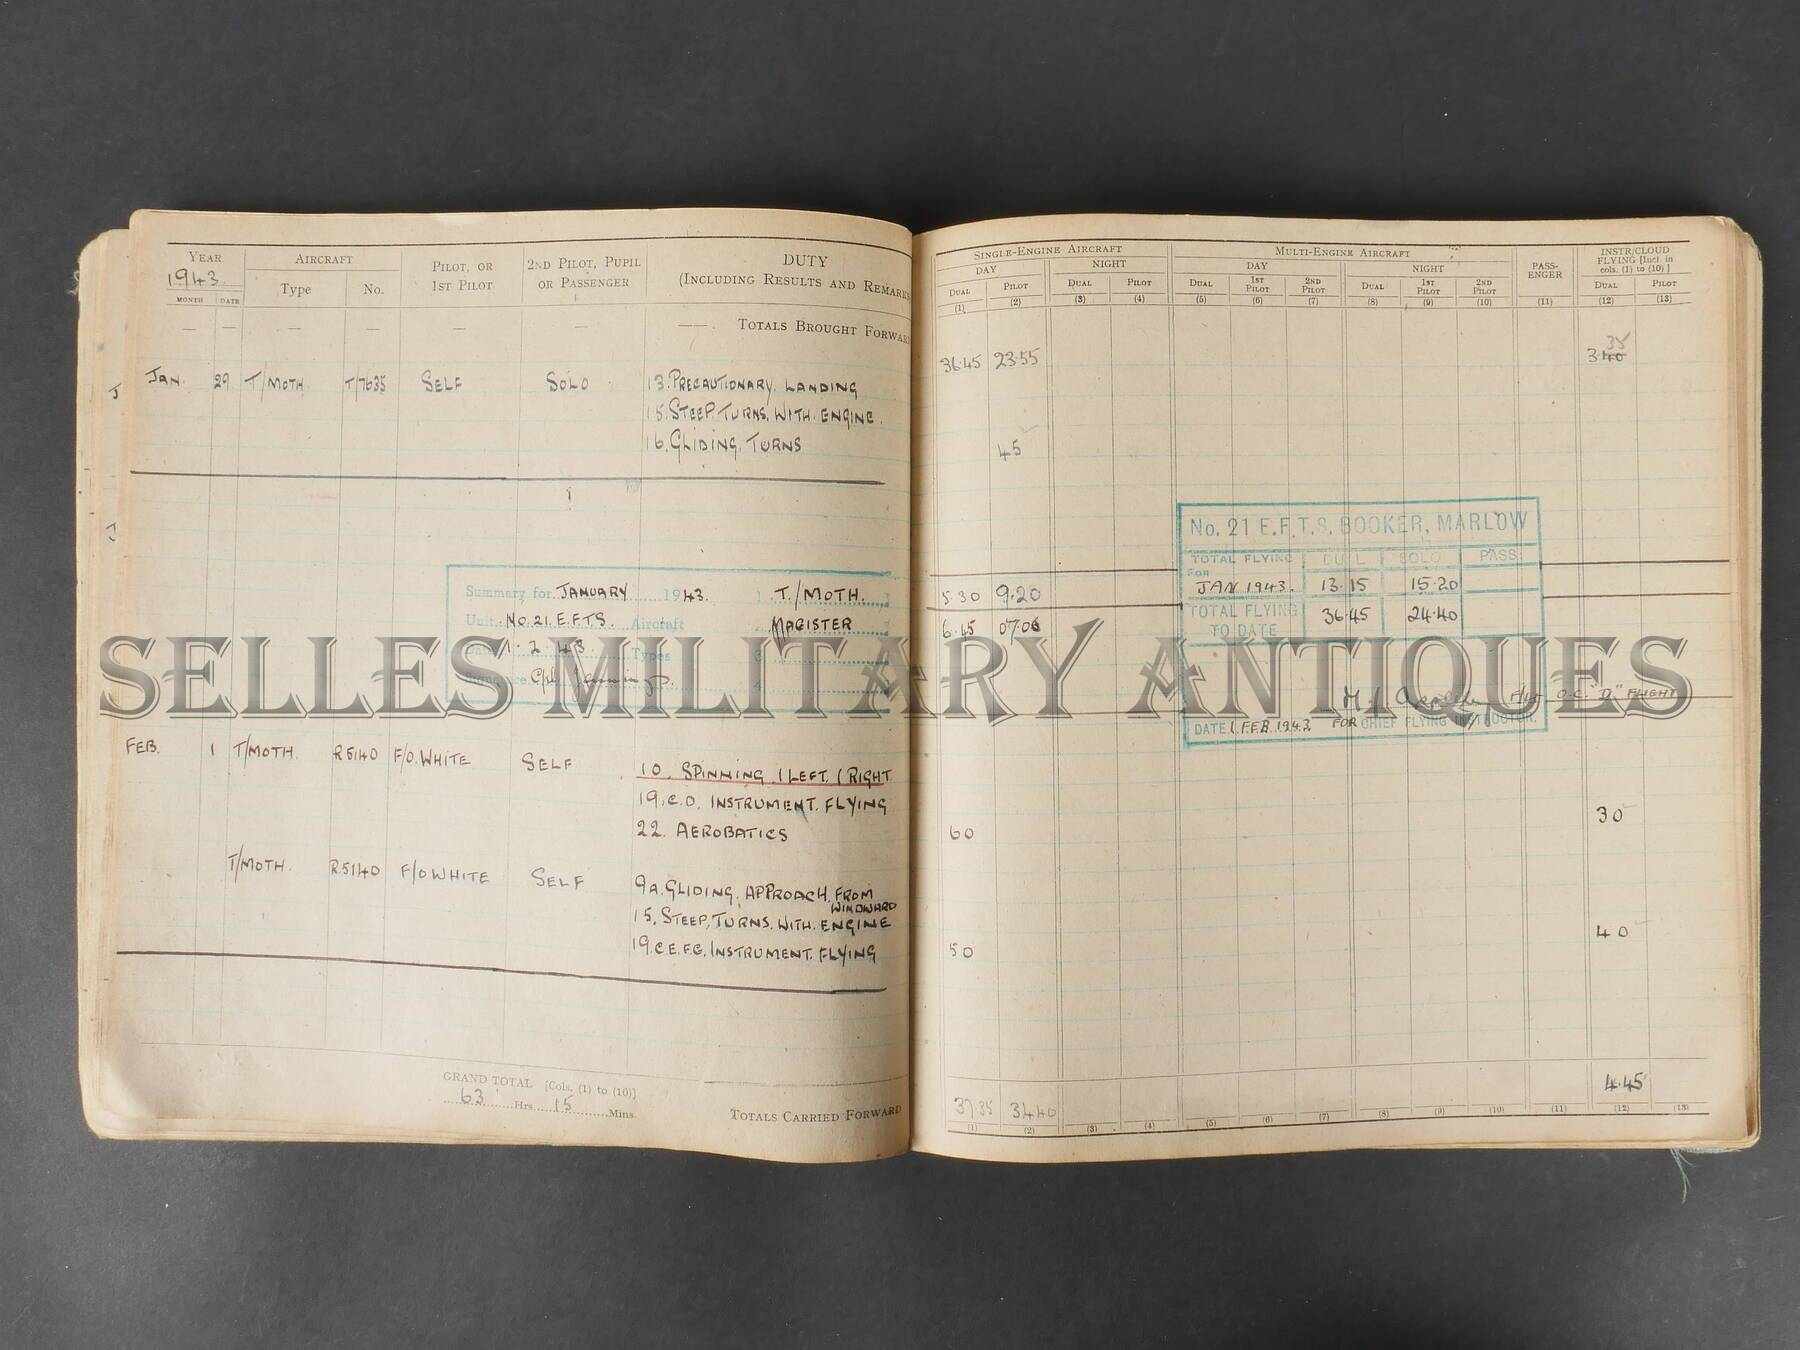 YEAR AIRCRAFT PILOT, OR 1ST PILOT 2ND PILOT, PUPIL OR PASSENGER DUTY (INCLUDING RESULTS AND REMARKS
1943. Type No.
MONTH DATE
— — — — — — —— TOTALS BROUGHT FORWARD
JAN. 29 T/MOTH. T/7635 SELF SOLO 13. PRECAUTIONARY. LANDING
15. STEEP. TURNS. WITH. ENGINE.
16. GLIDING. TURNS
Summary for JANUARY 1943. 1 T./MOTH.
Unit. No. 21. E.F.T.S. Aircraft MAGISTER
1. 2. 43. Types 3
4
FEB. 1 T/MOTH. R5140 F/O. WHITE SELF 10. SPINNING. 1 LEFT. 1 RIGHT
19. C.D. INSTRUMENT. FLYING
22. AEROBATICS
T/MOTH. R.5140 F/O WHITE SELF 9A. GLIDING. APPROACH. FROM WINDWARD
15. STEEP. TURNS. WITH. ENGINE
19. C.E.F.G. INSTRUMENT. FLYING
GRAND TOTAL [Cols. (1) to (10)]
63 Hrs. 15 Mins.
TOTALS CARRIED FORWARD
SINGLE-ENGINE AIRCRAFT MULTI-ENGINE AIRCRAFT PASS-ENGER INSTR/CLOUD FLYING [Incl. in cols. (1) to (10)]
DAY NIGHT DAY NIGHT
DUAL PILOT DUAL PILOT DUAL 1ST PILOT 2ND PILOT DUAL 1ST PILOT 2ND PILOT DUAL PILOT
(1) (2) (3) (4) (5) (6) (7) (8) (9) (10) (11) (12) (13)
35
36.45 23.55 3.40
45
No. 21 E.F.T.S. BOOKER, MARLOW
TOTAL FLYING DUAL SOLO PASS:
FOR JAN 1943. 13.15 15.20
5.30 9.20
TOTAL FLYING TO DATE 36.45 24.40
6.45 07.00
O.C. "D" FLIGHT
DATE 1 FEB. 1943 FOR CHIEF FLYING INSTRUCTOR.
30
60
40
50
4.45
37.35 34.40
(1) (2) (3) (4) (5) (6) (7) (8) (9) (10) (11) (12) (13)
SELLES MILITARY ANTIQUES